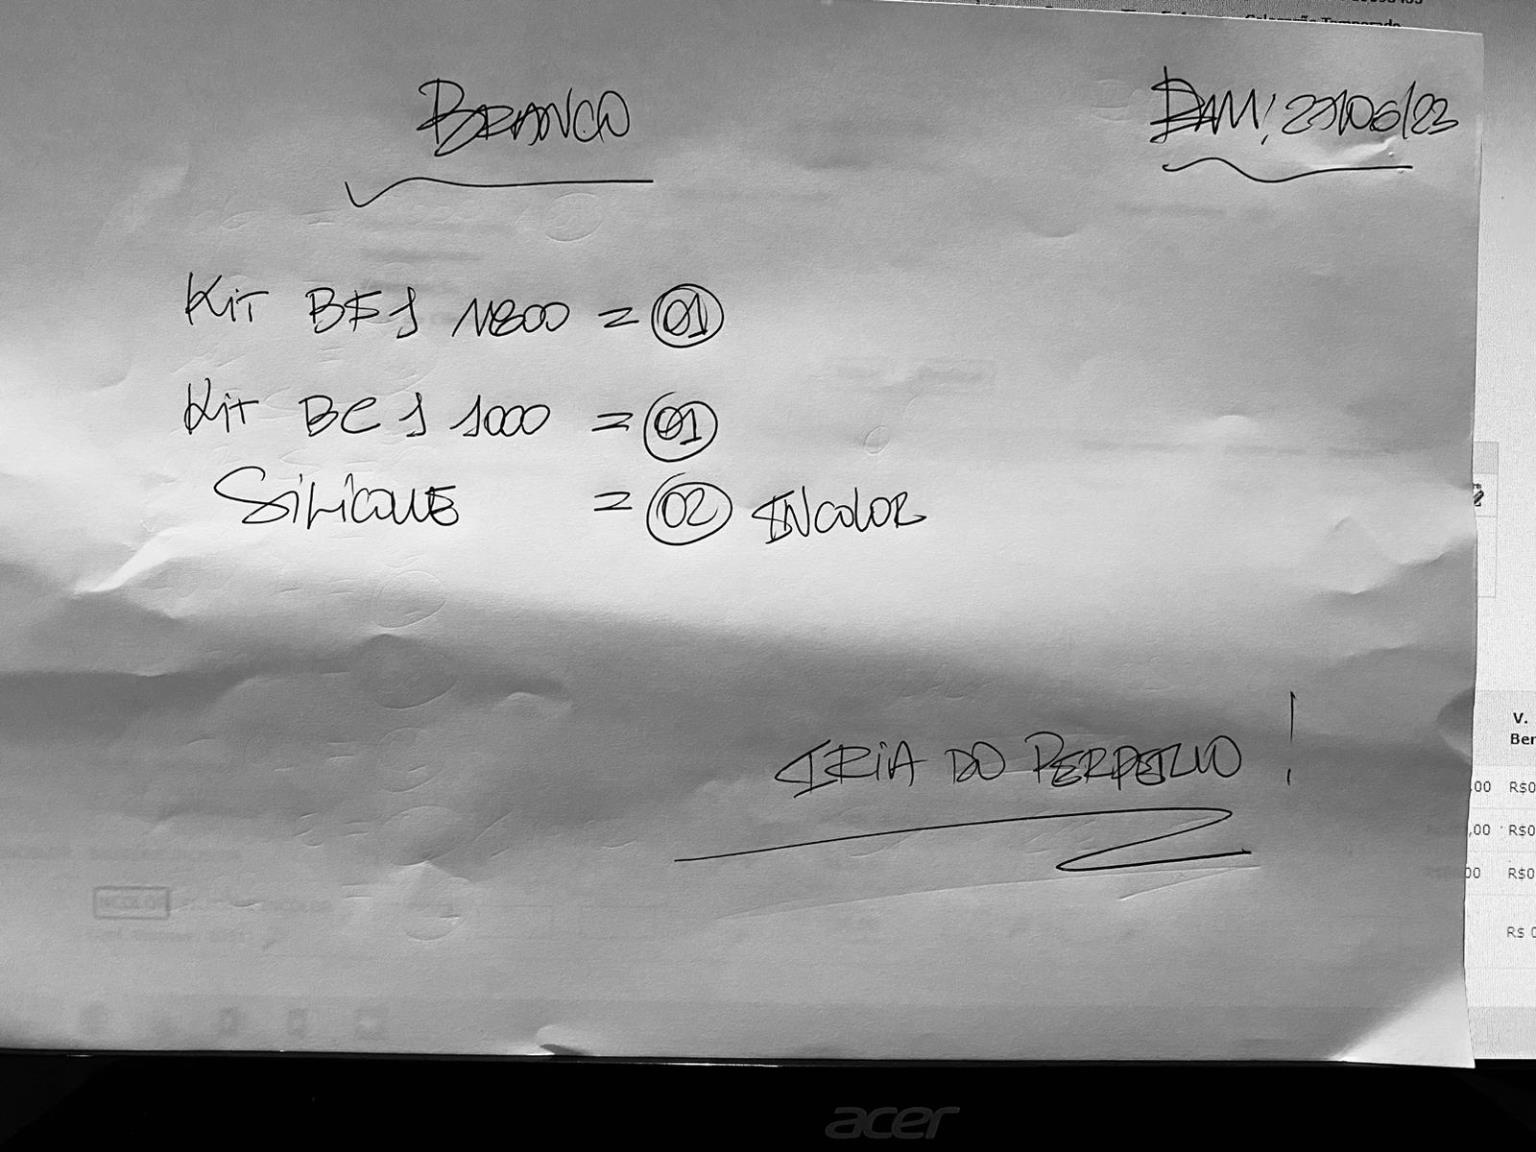 BRANCO
23/06/23
Kit BF1 1800 = 01
Kit BC1 1000 = 01
SILICONE = 02 INCOLOR
IRIA DO PERPETUO!
V.
Ber
,00 R$0
,00 R$0
00 R$0
R$ 0
INCOLOR
acer